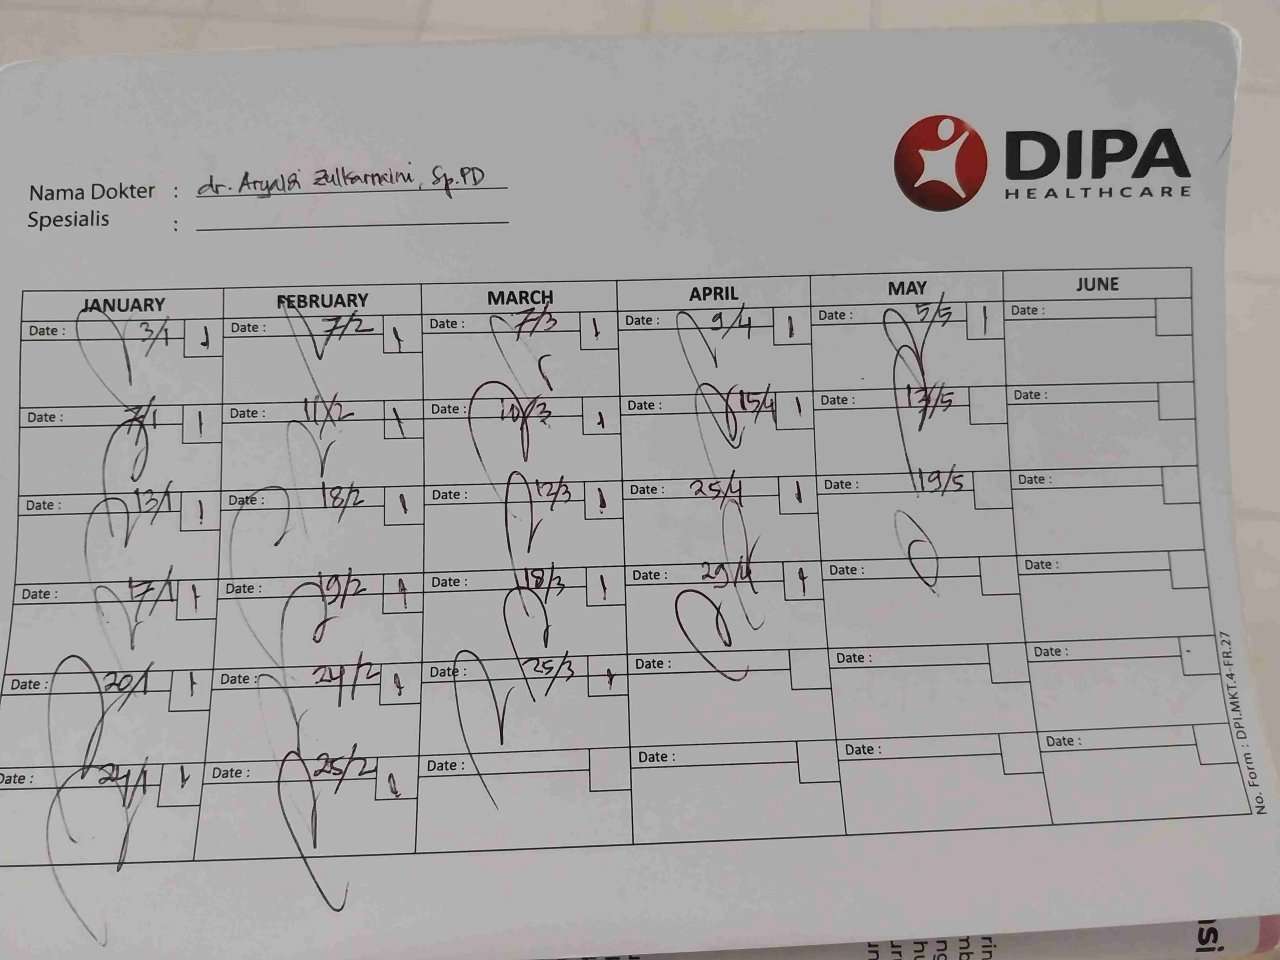 DIPA
HEALTHCARE
Nama Dokter : dr. Zulkarnaini, Sp.PD
Spesialis :
JANUARY FEBRUARY MARCH APRIL MAY JUNE
Date : 3/1 1 Date : 7/2 1 Date : 7/3 1 Date : 9/4 1 Date : 5/5 1 Date :
Date : 7/1 1 Date : 11/2 1 Date : 10/3 1 Date : 15/4 1 Date : 13/5 Date :
Date : 13/1 1 Date : 18/2 1 Date : 12/3 1 Date : 25/4 1 Date : 19/5 Date :
Date : 17/1 1 Date : 19/2 1 Date : 18/3 1 Date : 29/4 1 Date : Date :
Date : 20/1 1 Date : 24/2 1 Date : 25/3 1 Date : Date : Date :
Date : 24/1 1 Date : 25/2 1 Date : Date : Date : Date :
No. Form : DPI.MKT.4-FR.27